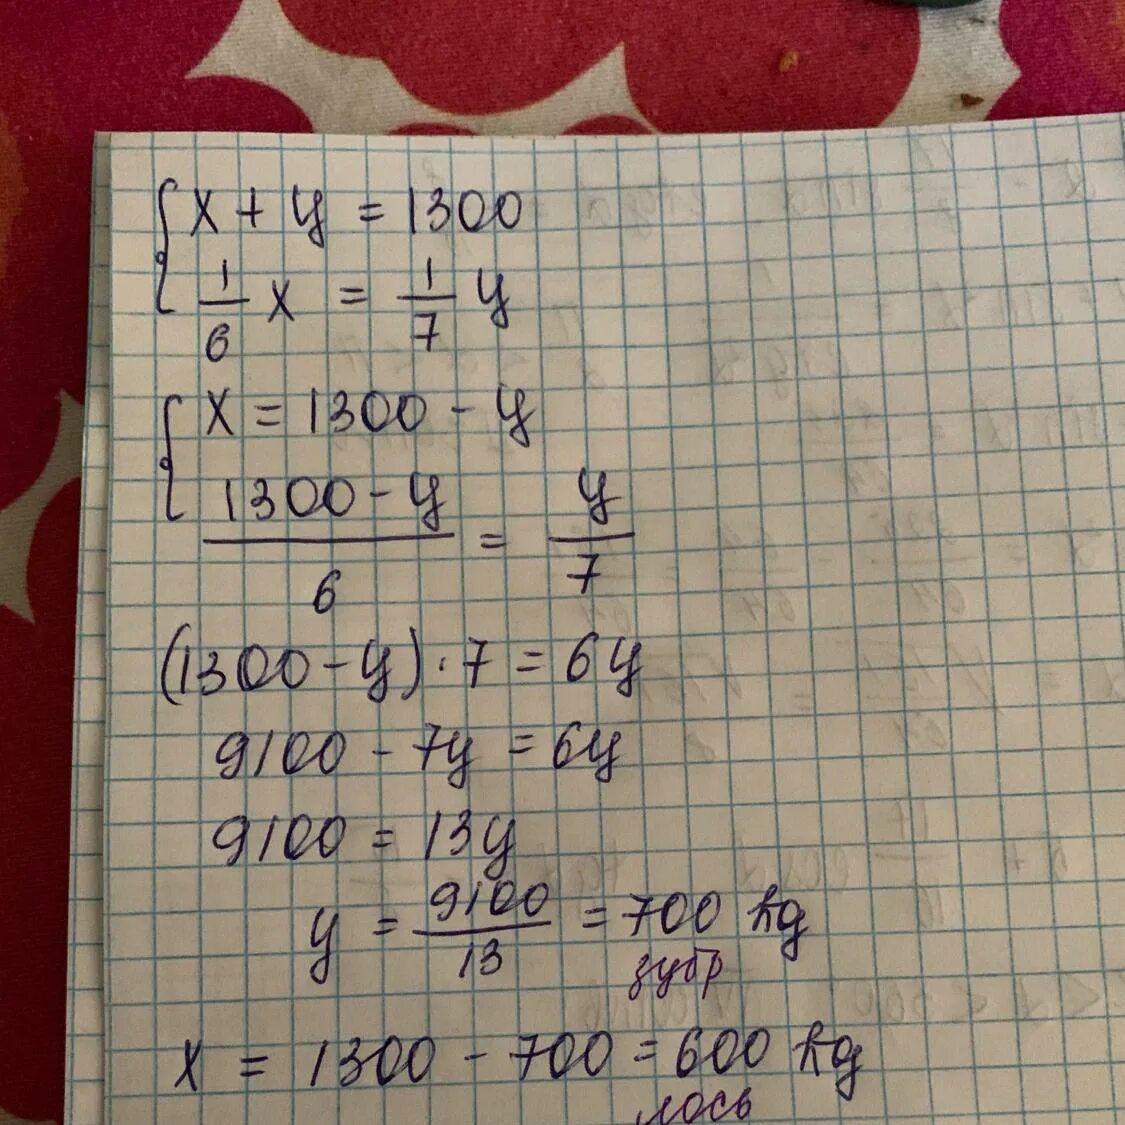 x + y = 1300
1/6 x = 1/7 y
x = 1300 - y
1300 - y / 6 = y / 7
(1300 - y) · 7 = 6y
9100 - 7y = 6y
9100 = 13y
y = 9100 / 13 = 700 kg
зубр
x = 1300 - 700 = 600 kg
лось